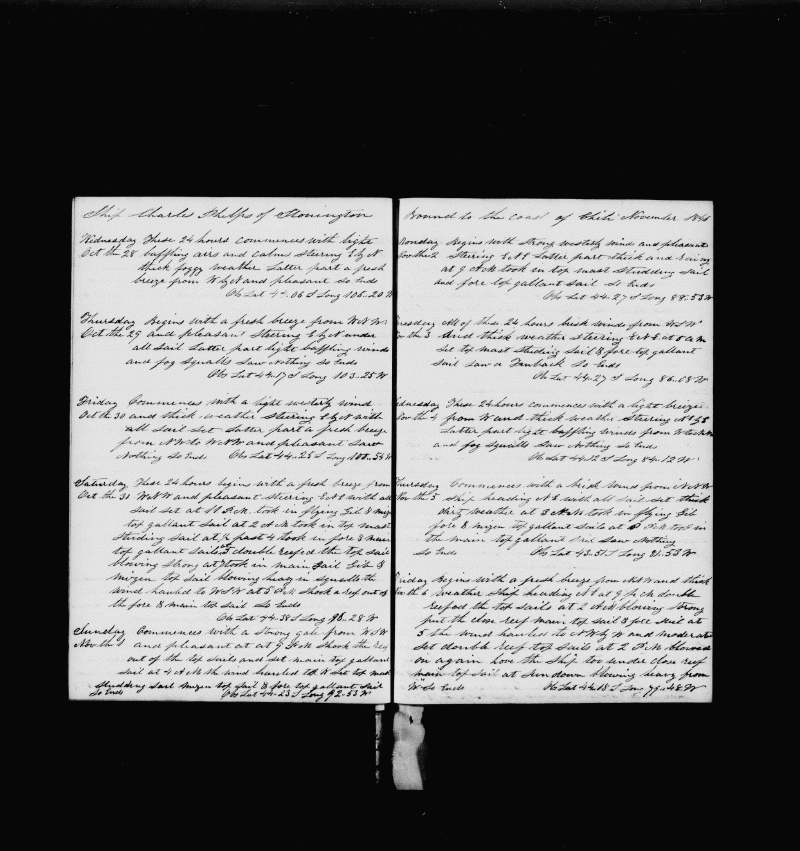 Ship Charles Phelps of Stonington
Wednesday These 24 hours commences with light
Oct the 28 baffling airs and calms steering E by N
thick foggy weather Latter part a fresh
breeze from W by N and pleasant So Ends
Ob Lat 44..06 S Long 105..20 W
Thursday Begins with a fresh breeze from W N W
Oct the 29 and pleasant Steering E by N under
all sail Latter part light baffling winds
and fog squalls Saw Nothing So Ends
Obs Lat 44..17 S Long 103..25 W
Friday Commences with a light westerly wind
Oct the 30 and thick weather Steering E by N with
all sail set Latter part a fresh breeze
from N W to W N W and pleasant Saw
Nothing So Ends Ob Lat 44..25 S Long 100..55 W
Saturday These 24 hours begins with a fresh breeze from
Oct the 31 W N W and pleasant Steering E N E with all
sail set at 11 P.M. took in flying Gib & mizen
top gallant sail at 2 A M took in top mast
studing sail at ½ past 4 took in fore & main
top gallant sails & double reefed the top sails
blowing strong at took in main sail Gib &
mizen top sail blowing heavy in squalls the
wind hauled to W S W at 5 P M Shook a reef out of
the fore & main top sail So Ends
Ob Lat 44..38 S Long 96..28 W
Sunday Commences with a Strong gale from W S W
Nov the 1 and pleasant at at 9 P.M. Shook the reef
out of the top sails and set main top gallant
sail at 4 A M the wind hauled to W set top mast
Studding sail mizen top sail & fore top gallant sail
So Ends Ob Lat 44..23 S Long 92..53 W
bound to the coast of Chili November
Monday Begins with Strong westerly wind and pleasant
Nov the 2 Steering E N E Latter part thick and rainy
at 9 A M took in top mast Studding sail
and fore top gallant sail So Ends
Ob Lat 44..27 S Long 88..53 W
Tuesday All of these 24 hours brisk winds from W S W
Nov the 3 And thick weather Steering E N E at 5 A M
Set top mast Studing Sail & fore top gallant
sail Saw a Finback So Ends
Ob Lat 44..27 S Long 86..08 W
Wednesday These 24 hours commences with a light breeze
Nov the 4 from W and thick weather Steering
Latter part light baffling winds from W to N W
and fog squalls Saw Nothing So Ends
Ob Lat 44..12 S Long 84..12 W
Thursday Commences with a brisk wind from N N W
Nov the 5 Ship heading N E with all sail set thick
dirty weather at 3 A.M. took in flying Gib
fore & mizen top gallant sails at P.M. took in
the main top gallant sail Saw Nothing
So Ends Ob Lat 43..51 S Long 81..53 W
Friday Begins with a fresh breeze from and thick
Nov the 6 weather Ship heading at 9 P.M. double
reefed the top sails at 2 A.M. blowing strong
put the close reef main top sail & fore sail at
5 the wind hauled to N W by W and moderate
set double reef top sails at 2 P.M. blowed
on again hove the ship too under close reef
main top sail at Sun down blowing heavy from
W So Ends Ob Lat 44..18 S Long 79..48 W